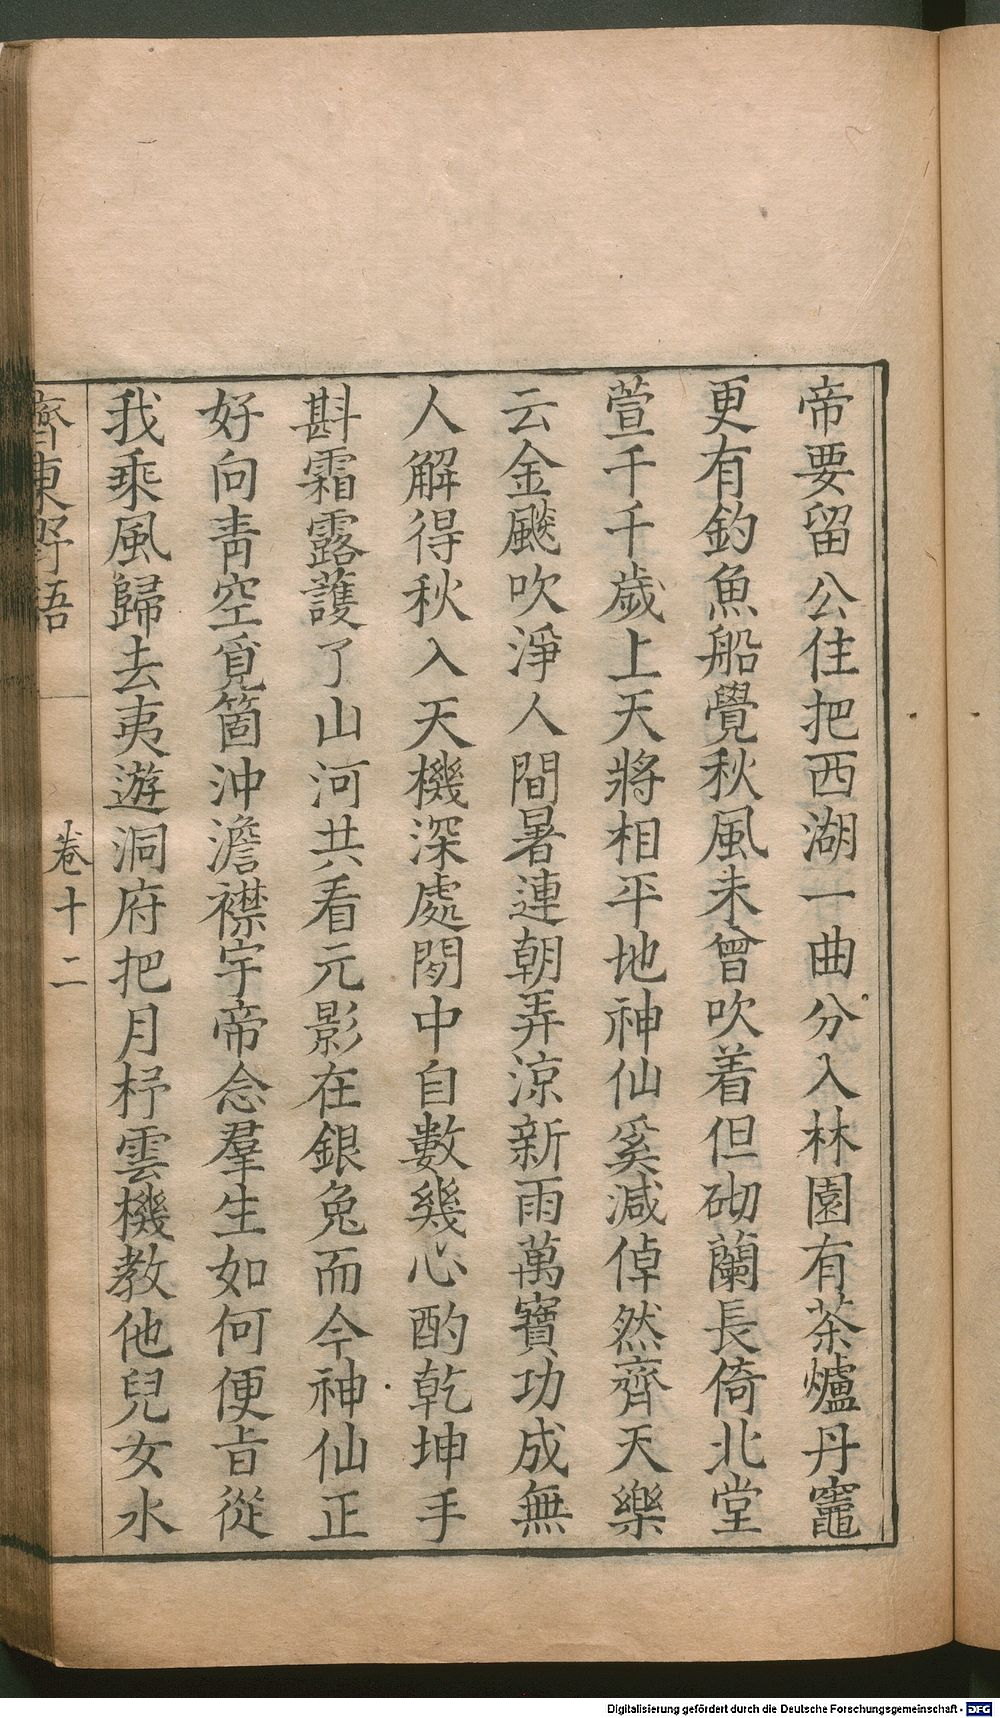 帝要留公住把西湖一曲分入林園有茶爐丹竈
更有釣魚船覺秋風未曾吹着但砌蘭長倚北堂
萱千千歲上天將相平地神仙奚減倬然齊天樂
云金飈吹淨人間暑連朝弄涼新雨萬寶功成無
人解得秋入天機深處閒中自數幾心酌乾坤手
斟霜露護了山河共看元影在銀兔而今神仙正
好向靑空覓箇沖澹襟宇帝念羣生如何便旨從
我乘風歸去夷遊洞府把月杼雲機教他兒女水
齊東野語 卷十二
Digitalisierung gefördert durch die Deutsche Forschungsgemeinschaft - DFG